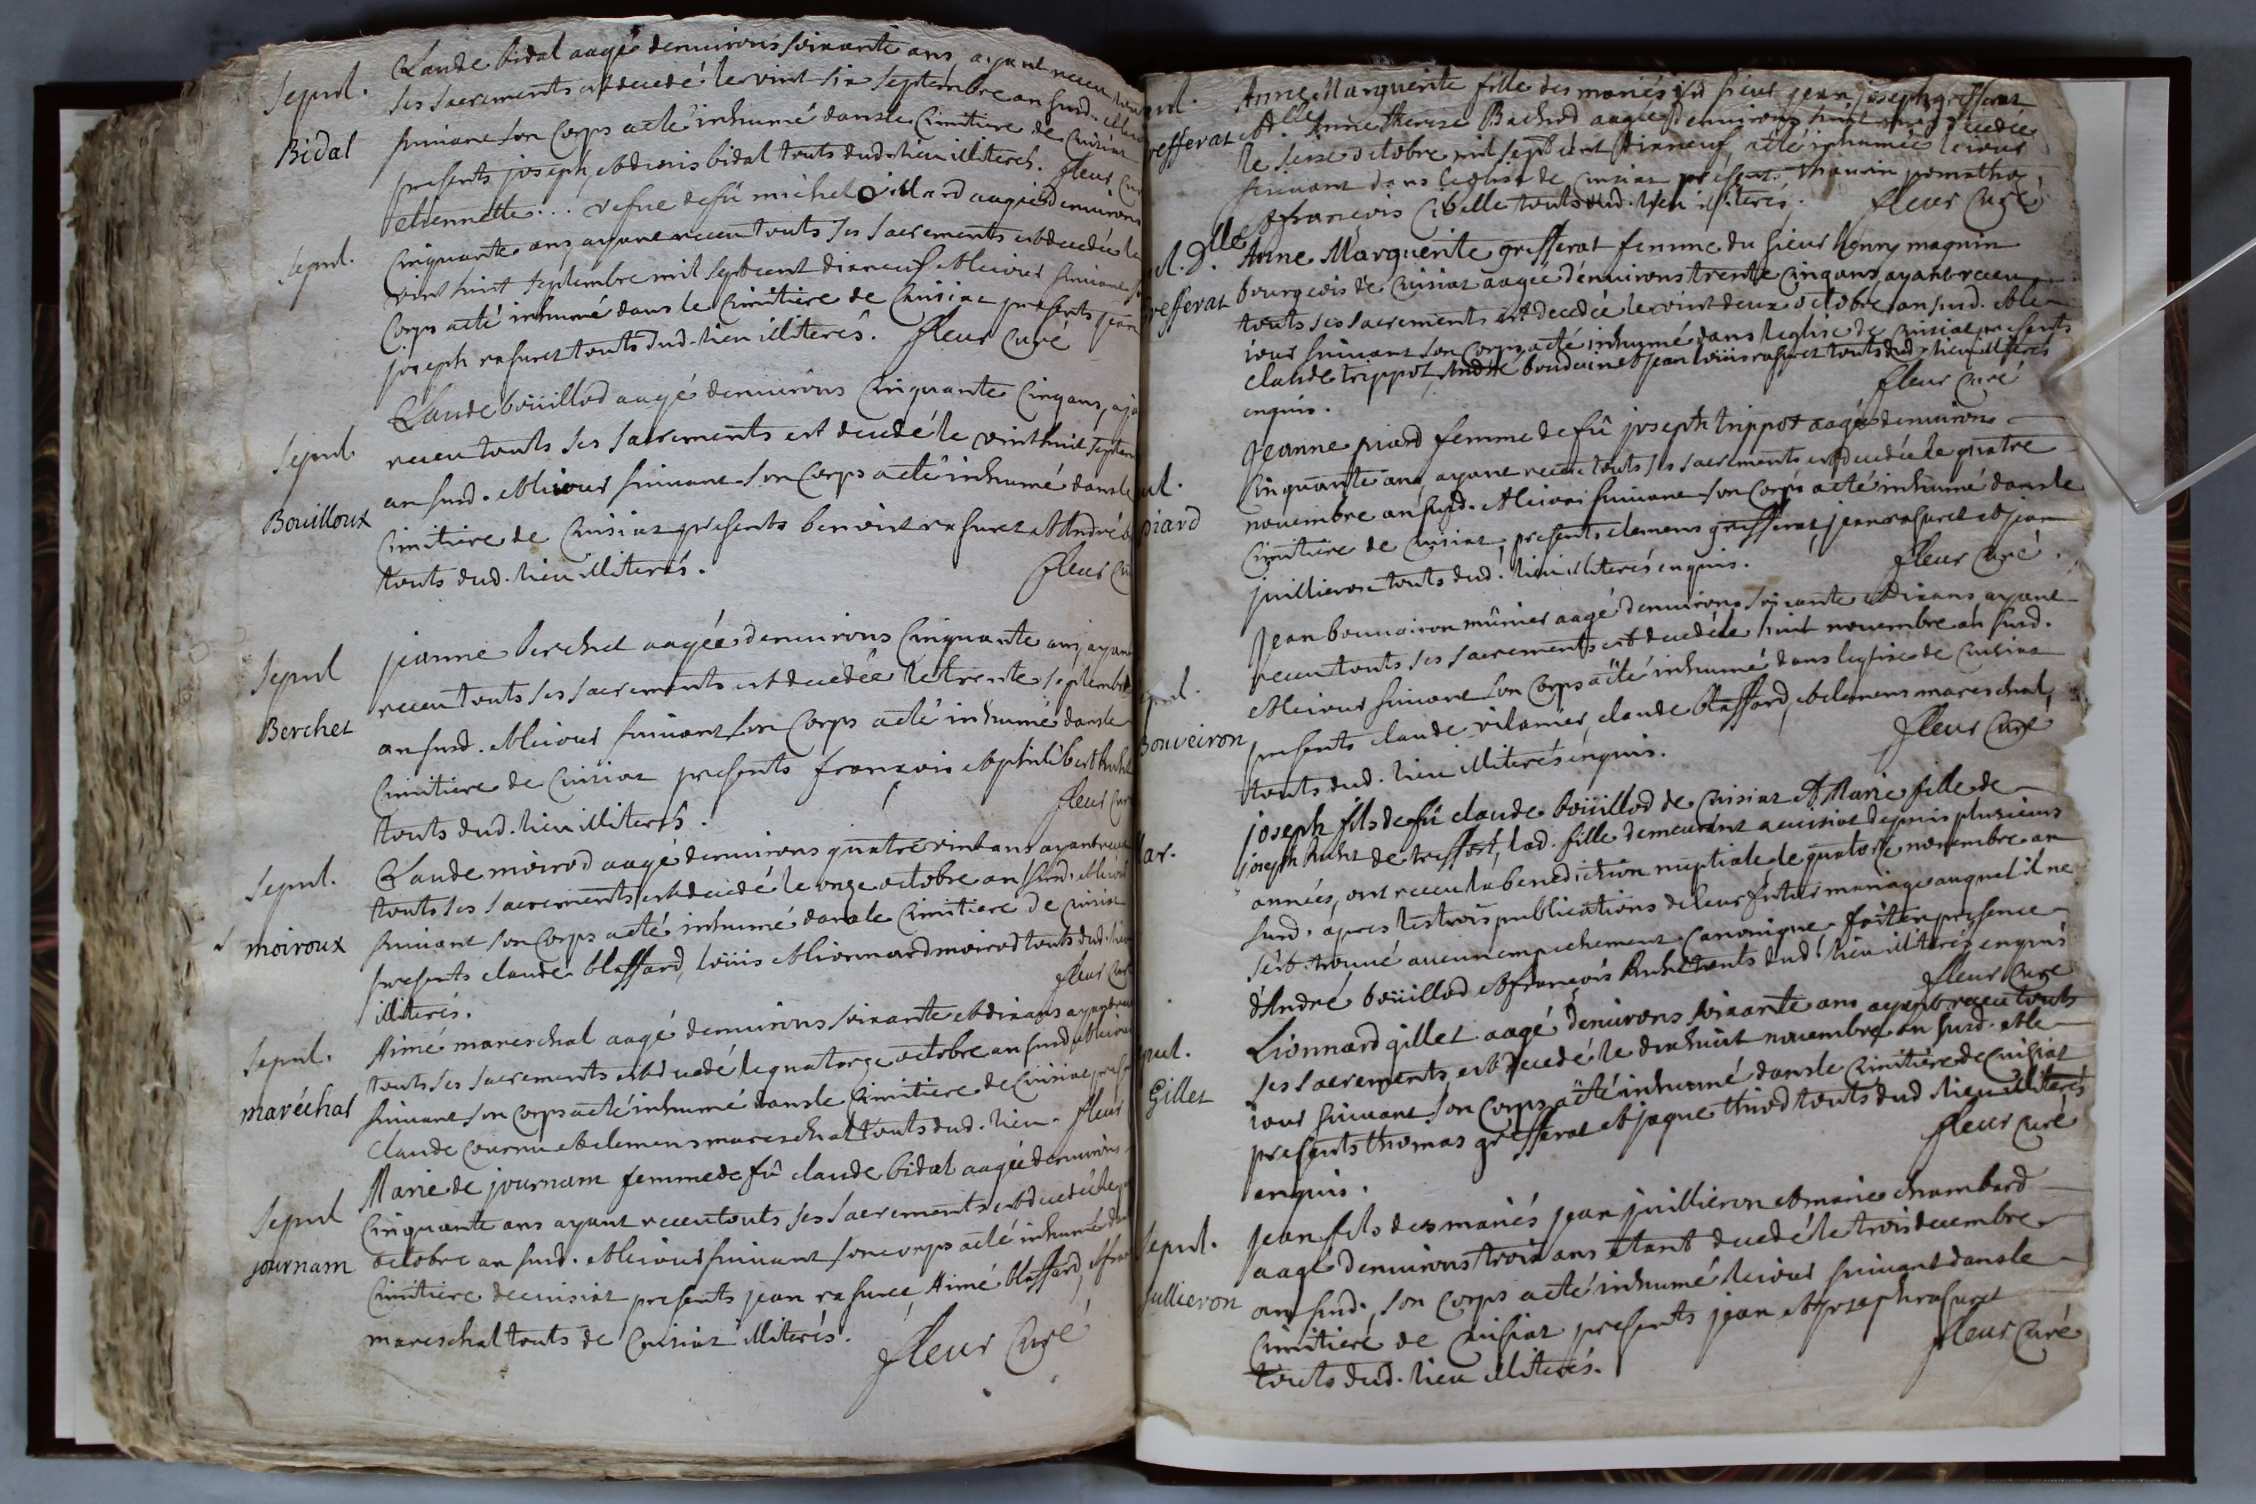 Sepul.
Bidal
Claude bidal aagé denuirons soixante ans, ayant receu touts
ses sacrements est decedé le vint six septembre an susd. et le iour
suiuant son corps a eté inhumé dans le Cimitiere de Cuisiat
presents joseph, et denis bidal touts dud. lieu illiterés. fleur Curé
Sepul.
etiennette ... vefue de fû michel oillard aagée denuirons
Cinquante ans ayant receu touts ses sacrements est decedée le
vint huit septembre mil sept cent dixneuf et le iour suiuant son
Corps a eté inhumé dans le Cimitiere de Cuisiat presents jean
joseph rasuret touts dud. lieu illiterés. fleur Curé
Sepul.
Bouilloux
Claude boüillod aagé denuirons Cinquante Cinq ans, aya
receu touts ses sacrements est decedé le vint huit septem
an susd. et le iour suiuant son Corps a eté inhumé dans le
Cimitiere de Cuisiat presents benoist rasuret et André
touts dud. lieu illiterés. fleur Cu
Sepul
Berchet
jeanne berchet aagée denuirons Cinquante ans, ayant
receu touts ses sacrements est decedée le trente septembre
an susd. et le iour suiuant son Corps a eté inhumé dans le
Cimitiere de Cuisiat presents françois et philibert
touts dud. lieu illiterés. fleur Curé
Sepul.
moiroux
Claude moirod aagé denuirons quatre vint ans ayant receu
touts ses sacrements est decedé le onze octobre an susd. et le iour
suiuant son Corps a eté inhumé dans le Cimitiere de Cuisiat
presents claude blaffard, loüis et lionnard moirod touts dud. lieu
illiterés. fleur Curé
Sepul.
maréchal
Aimé mareschal aagé denuirons soixante et dix ans ayant receu
touts ses sacrements est decedé le quatorze octobre an susd. et le iour
suiuant son Corps a eté inhumé dans le Cimitiere de Cuisiat presents
Claude et clemens mareschal touts dud. lieu. fleur
Sepul
journam
Marie de journam femme de fû claude bidal aagée denuirons
Cinquante ans ayant receu touts ses sacrements est decedée le
octobre an susd. et le iour suiuant son corps a eté inhumé dans
Cimitiere de cuisiat presents jean rasuret, Aimé blaffard, et
mareschal touts de Cuisiat illiterés. fleur Curé
pul.
refferat
Anne Marguerite fille des mariés sieur jean joseph grefferat
et dlle Anne Therese Bachod aagée denuirons huit decedée
le seize octobre mil sept cent dixneuf, a eté inhumée le iour
suiuant dans l'eglise de Cuisiat presents
et françois Cibelle touts dud. lieu illiterés. fleur Curé
ul. Dlle
refferat
Anne Marguerite grefferat femme du sieur henry magnin
bourgeois de Cuisiat aagée denuirons trente Cinq ans, ayant receu
touts ses sacrements est decedée le vint deux octobre an susd. et le
iour suiuant son Corps a eté inhumé dans leglise de Cuisiat presents
claude trippot, André bouduin et jean loüis rasuret touts dud. lieu illiterés
enquis. fleur Curé
ul.
piard
Jeanne piard femme de fû joseph trippot aagée denuirons
Cinquante ans, ayant receu touts ses sacrements est decedée le quatre
nouembre an susd. et le iour suiuant son Corps a eté inhumé dans le
Cimitiere de Cuisiat, presents clemens grefferat, jean rasuret et jean
juillieron touts dud. lieu illiterés enquis. fleur Curé
epul.
Bouveiron
Jean bouuairon mûnier aagé denuirons soixante et dix ans ayant
receu touts ses sacrements est decedé le huit nouembre an susd.
et le iour suiuant son Corps a eté inhumé dans leglise de Cuisiat
presents claude vilanier, claude blaffard, et clemens mareschal,
touts dud. lieu illiterés enquis. fleur Curé
ar.
joseph fils de fû claude boüillod de Cuisiat et Marie fille de
joseph huht de treffort, lad. fille demeurant a cuisiat depuis plusieurs
années, ont receu la benediction nuptiale le quatorze nouembre an
susd. apres les trois publications de leur futur mariage auquel il ne
s'est trouué aucun empechement Canonique, fait en presence
d'André boüillod et françois touts dud. lieu illiterés enquis
fleur Curé
epul.
Gillet
Lionnard gillet aagé denuirons soixante ans ayant receu touts
ses sacrements est decedé le dixhuit nouembre an susd. et le
iour suiuant son Corps a eté inhumé dans le Cimitiere de Cuisiat
presents thomas grefferat et jaque thiod touts dud lieu illiterés
enquis. fleur Curé
Sepul.
Jullieron
Jean fils des mariés jean juillieron et marie chambard
aagé denuirons trois ans etant decedé le trois decembre
an susd. son Corps a eté inhumé le iour suiuant dans le
Cimitieré de Cuisiat presents jean et joseph rasuret
touts dud. lieu illiterés. fleur Curé